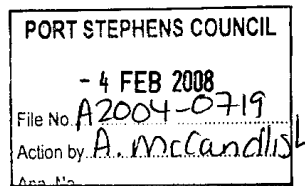 PORT STEPHENS COUNCIL
- 4 FEB 2008
File No. A2004-0719
Action by A. McCandlish